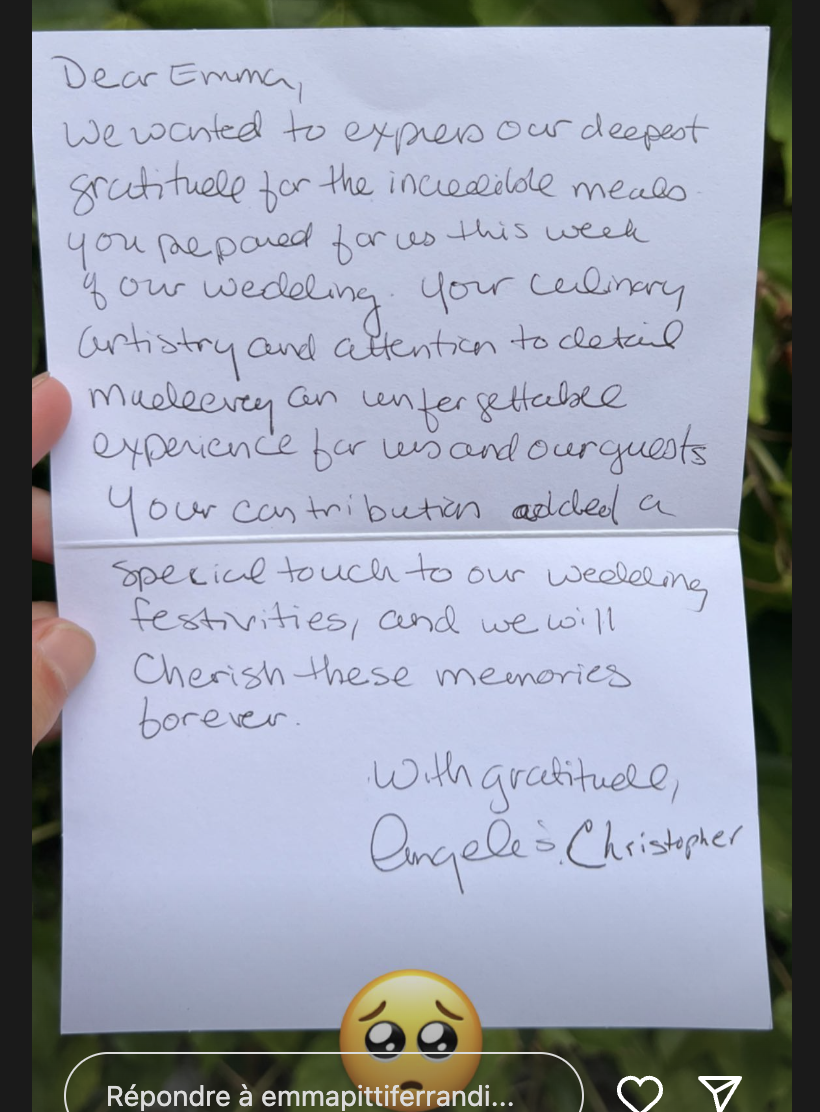 Dear Emma,
We wanted to express our deepest
gratitude for the incredible meals
you prepared for us this week
of our wedding. Your culinary
artistry and attention to detail
made every an unforgettable
experience for us and our guests
Your contribution added a
special touch to our wedding
festivities, and we will
cherish these memories
forever.
With gratitude,
Angele & Christopher
Répondre à emmapittiferrandi...